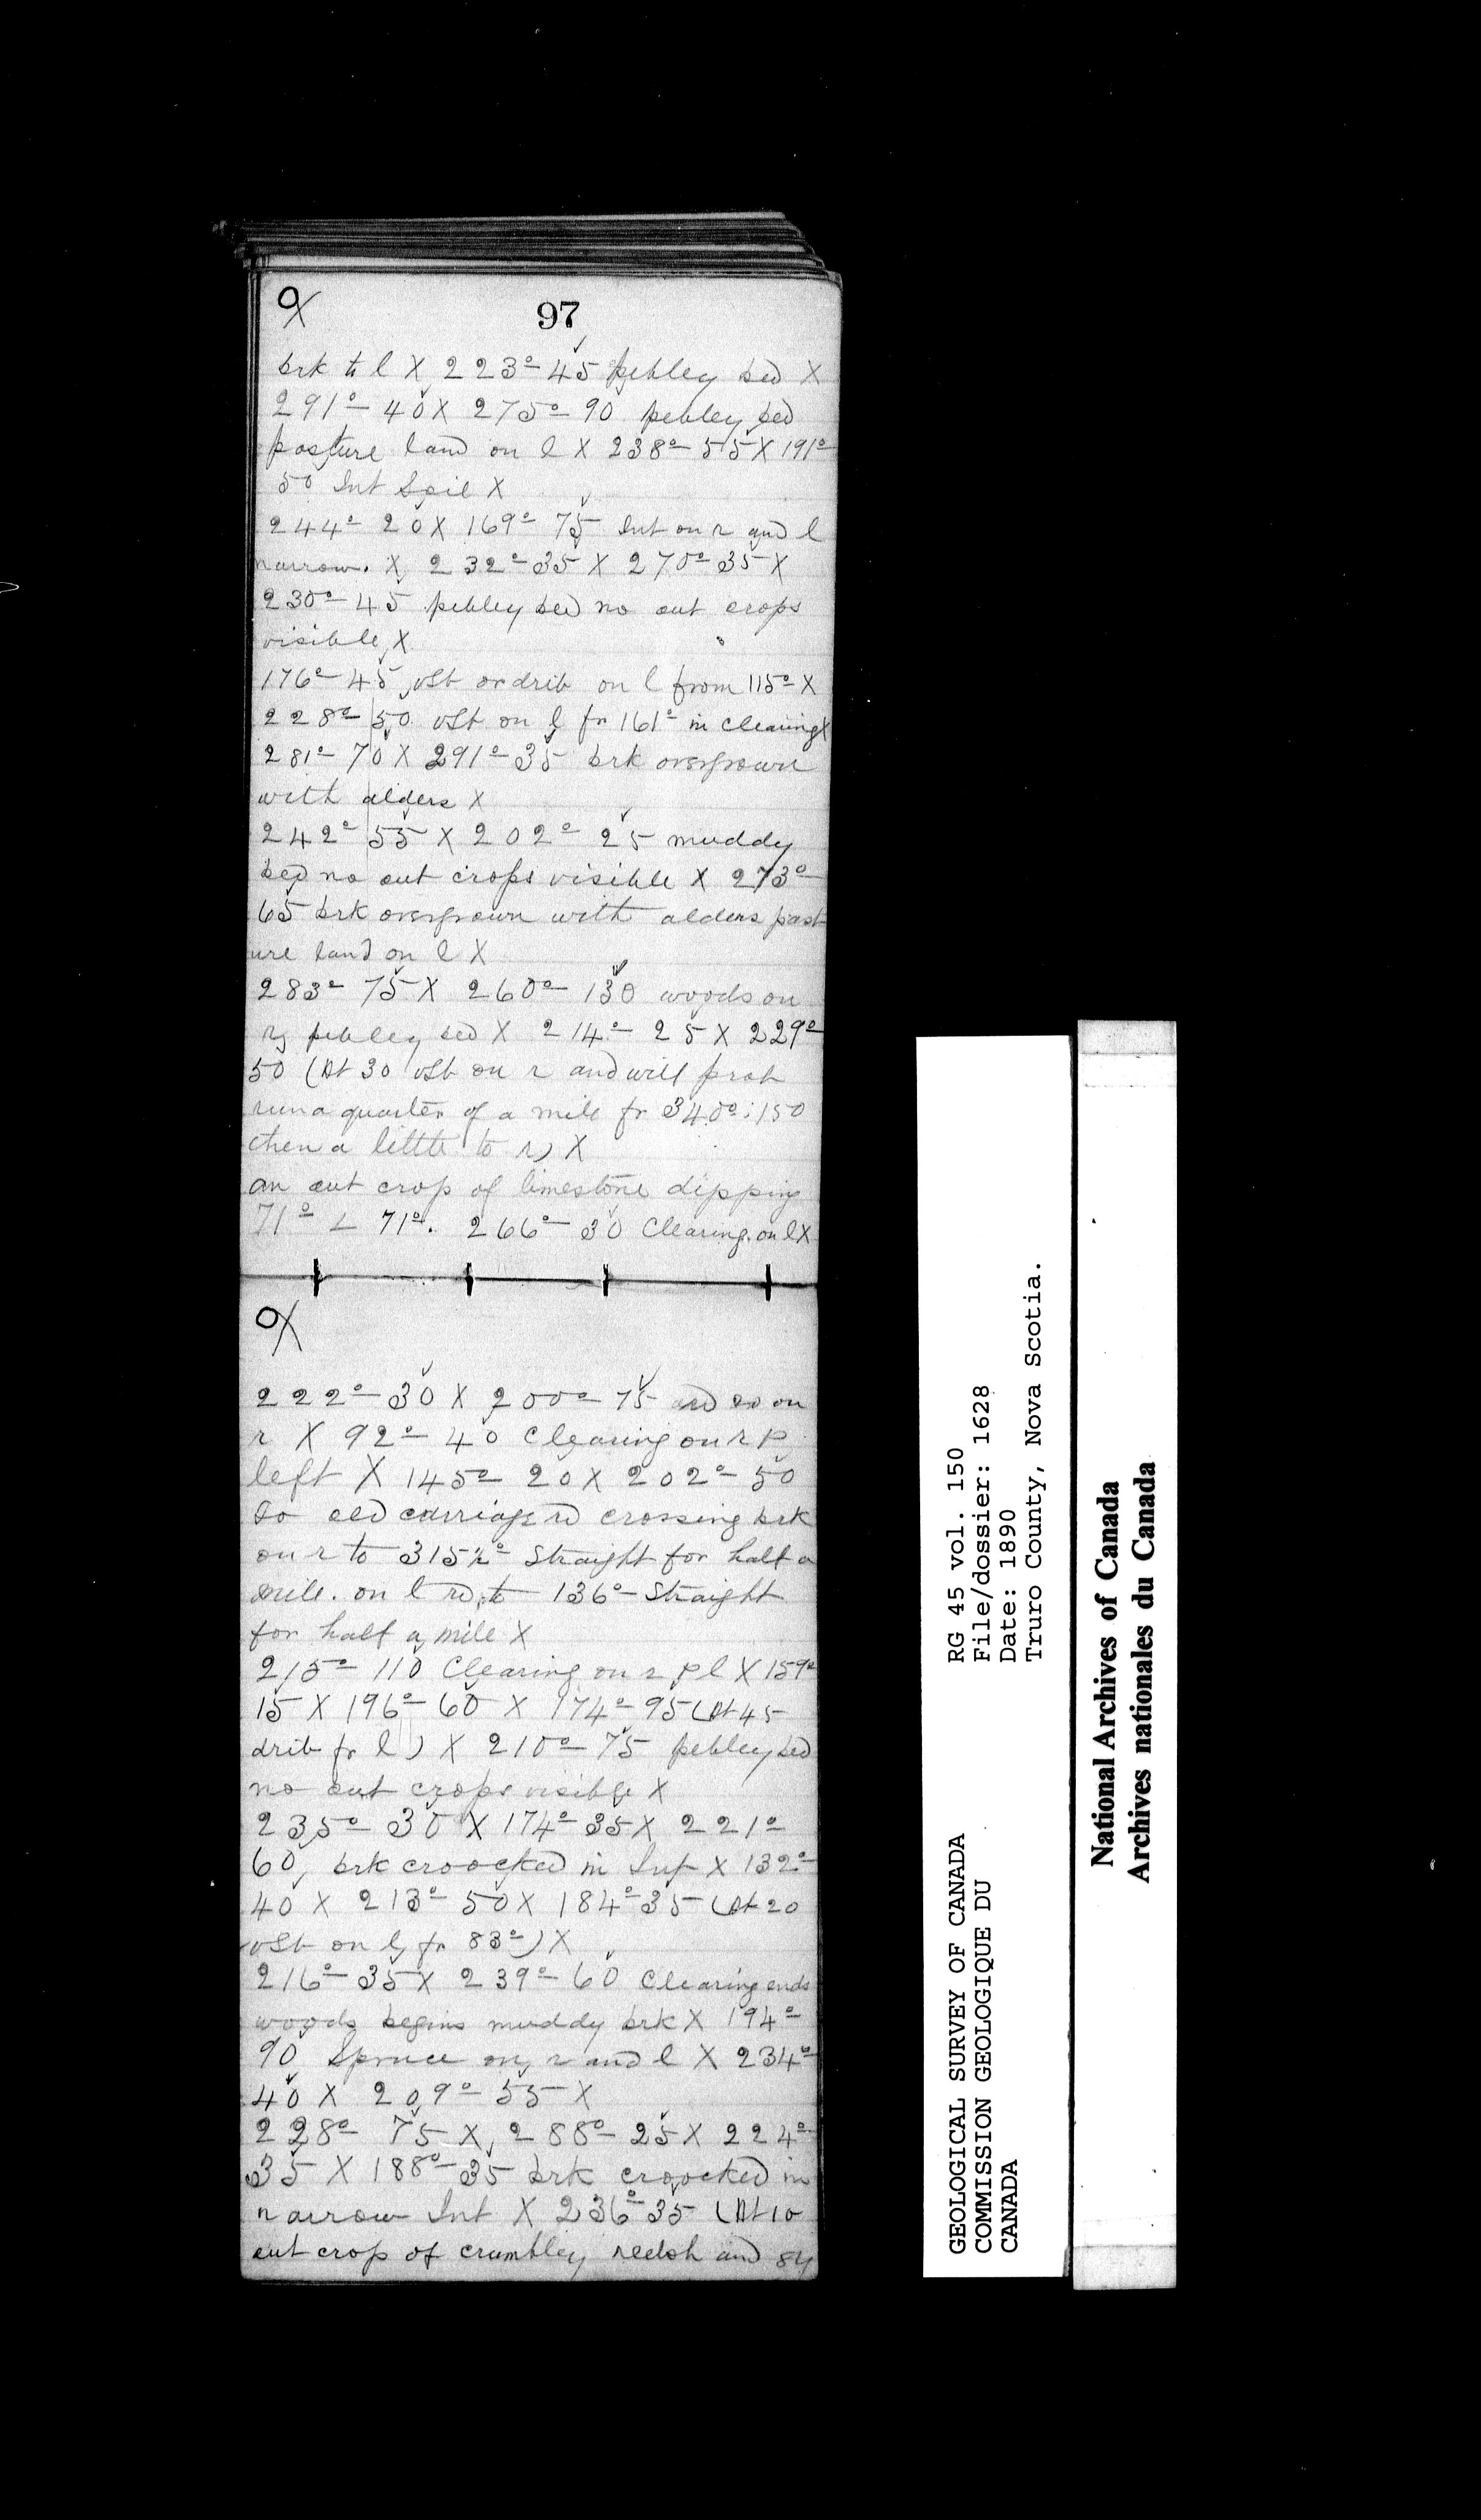 97
brk to l X 223º 45 pebbley bed X
291º 40 X 275º 90 pebley bed
pasture land on l X 238º 55 X 191º
50 Int Soil X
244º 20 X 169º 75 Int on r and l
narrow. X 232º 35 X 270º 35 X
230º 45 pebley bed no out crops
visible X
176º 45 vSt or drib on l from 115º X
228º 50 vSt on l fr 161º in clearing X
281º 70 X 291º 35 brk overgrown
with alders X
242º 55 X 202º 25 muddy
bed no out crops visible X 273º
65 brk overgrown with alders past
ure land on l X
283º 75 X 260º 130 woods on
r pebley bed X 214º 25 X 229º
50 (At 30 vSt on r and will prob
run a quarter of a mile fr 340º : 150
then a little to r) X
an out crop of limestone dipping
71º ∠ 71º. 266º 30 Clearing on l X
222º 30 X 200º 75 on
r X 92º 40 Clearing on r &
left X 145º 20 X 202º 50
do old carriage rd crossing brk
on r to 315½º Straight for half a
mile. on l rd to 136º Straight
for half a mile X
215º 110 Clearing on r & l X 159º
15 X 196º 60 X 174º 95 (At 45
drib fr l) X 210º 75 pebley bed
no out crops visible X
235º 30 X 174º 35 X 221º
60, brk croocked in Int X 132º
40 X 213º 50 X 184º 35 (At 20
vSt on l fr 83º) X
216º 35 X 239º 60 Clearing ends
woods begins muddy brk X 194º
90 Spruce on r and l X 234º
40 X 209º 55 X
228º 75 X 288º 25 X 224º
35 X 188º 35 brk croocked in
narrow Int X 236º 35 (At 10
out crop of crumbley redsh and
GEOLOGICAL SURVEY OF CANADA
COMMISSION GEOLOGIQUE DU
CANADA
RG 45 vol. 150
File/dossier: 1628
Date: 1890
Truro County, Nova Scotia.
National Archives of Canada
Archives nationales du Canada